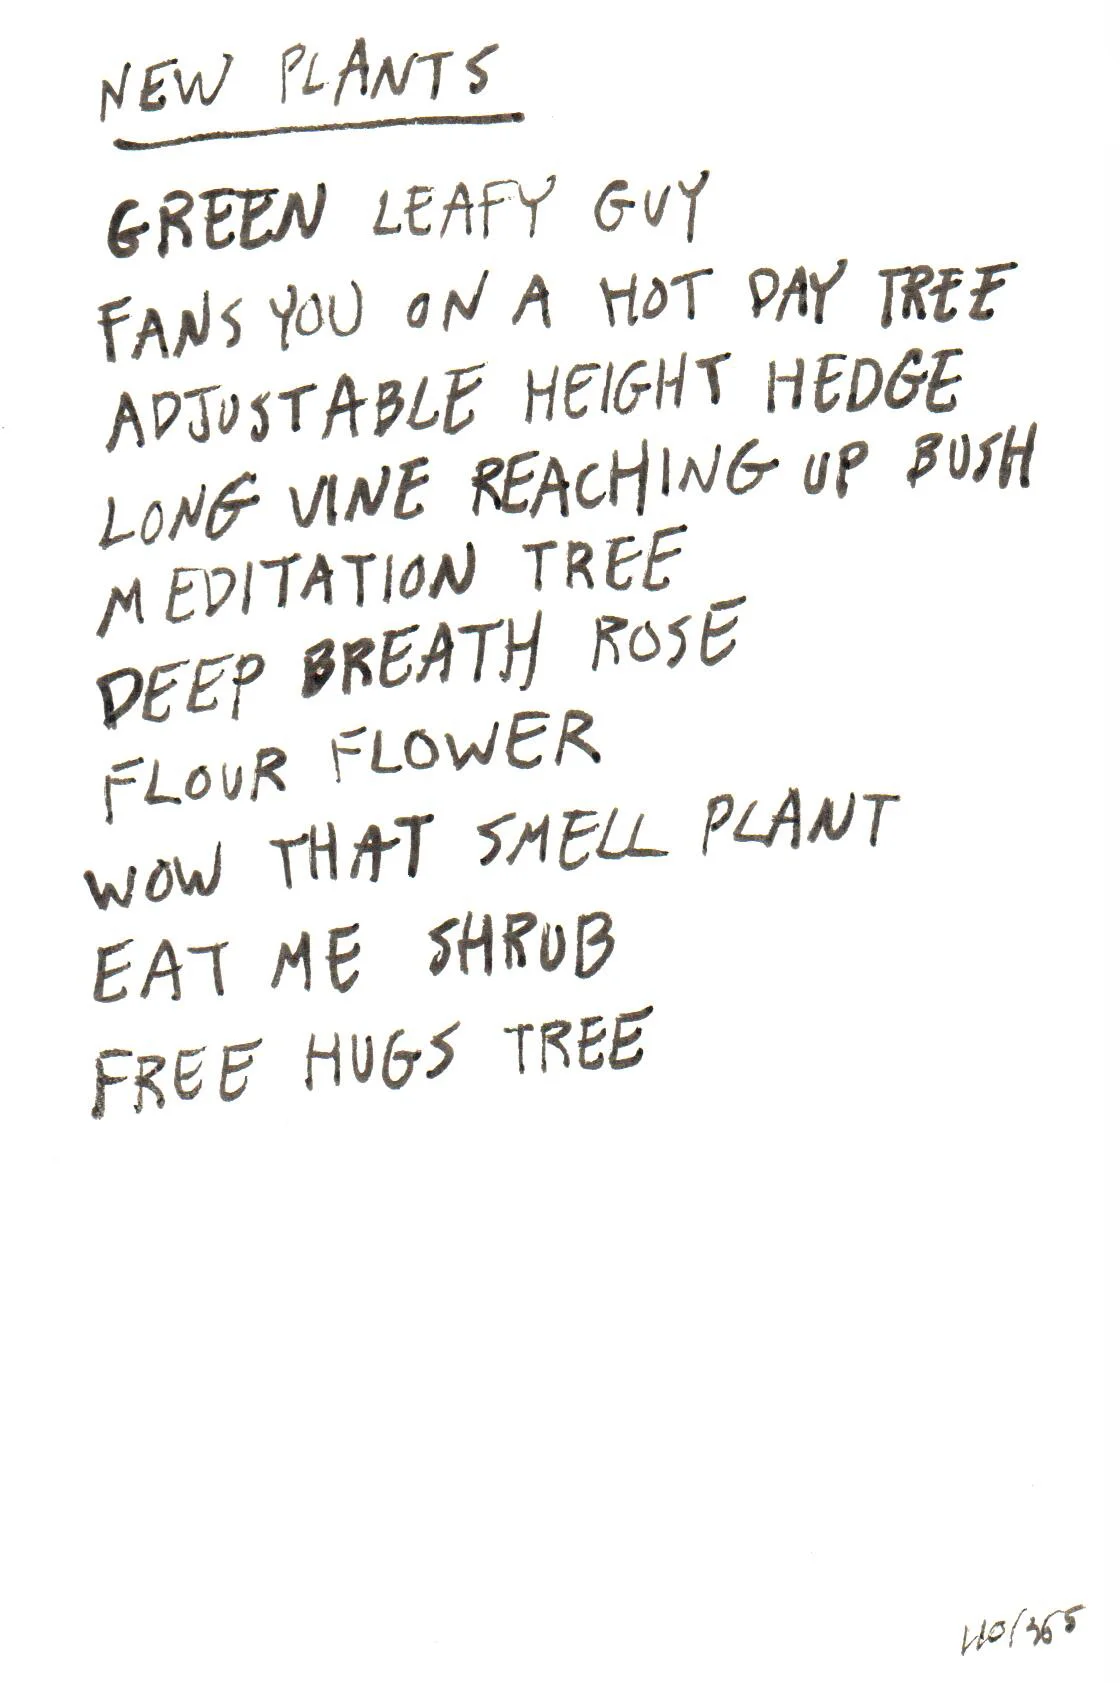 NEW PLANTS
GREEN LEAFY GUY
FANS YOU ON A HOT DAY TREE
ADJUSTABLE HEIGHT HEDGE
LONG VINE REACHING UP BUSH
MEDITATION TREE
DEEP BREATH ROSE
FLOUR FLOWER
WOW THAT SMELL PLANT
EAT ME SHRUB
FREE HUGS TREE
110/365